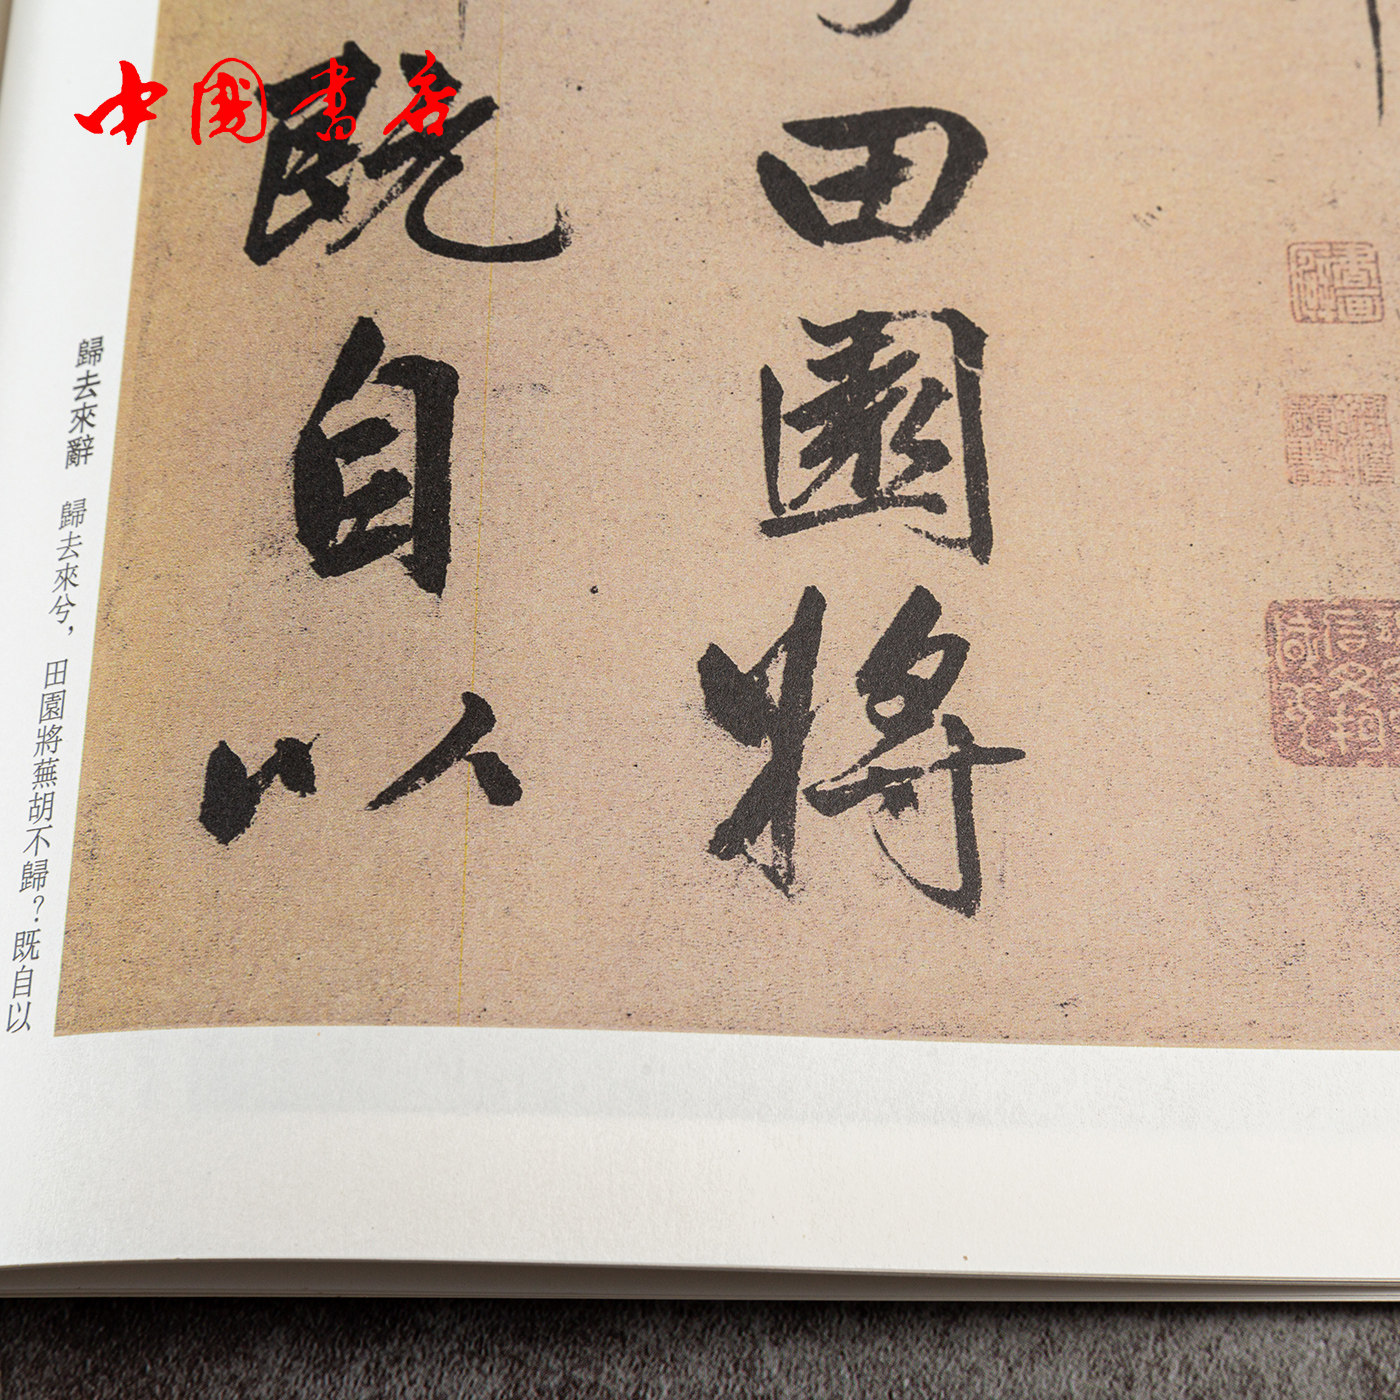 中國書店
田園將
既自以
歸去來辭 歸去來兮，田園將蕪胡不歸？既自以